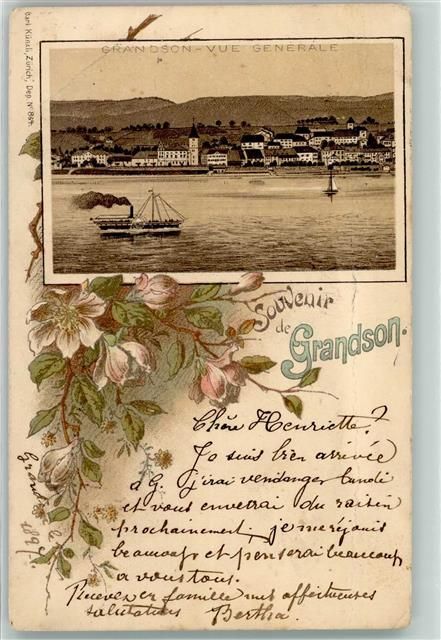 GRANDSON - VUE GÉNÉRALE
Carl Künzli, Zürich, Dep. No 894.
Souvenir
de
Grandson.
Chère Henriette?
Je suis bien arrivée
à G. j'irai vendanger lundi
et vous enverai du raisin
prochainement, je me réjouis
beaucoup et penserai beaucoup
a vous tous.
Recevez en famille mes affectueuses
salutations Bertha.
1897